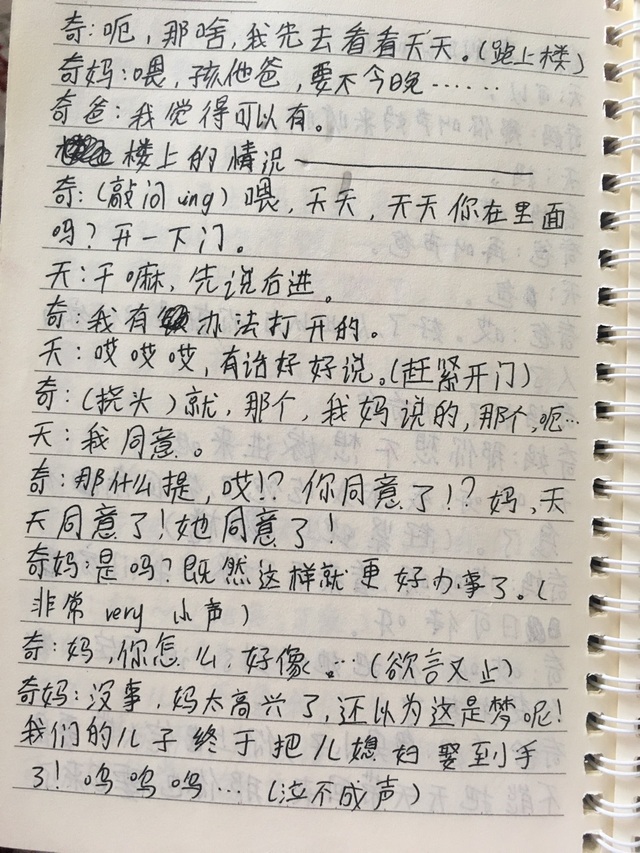 奇:呃,那啥,我先去看看天天。(跑上楼)
奇妈:喂,孩他爸,要不今晚……
奇爸:我觉得可以有。
楼上的情况——
奇:(敲门ing)喂,天天,天天你在里面
吗?开一下门。
天:干嘛,先说后进。
奇:我有办法打开的。
天:哎哎哎,有话好好说。(赶紧开门)
奇:(挠头)就,那个,我妈说的,那个,呃…
天:我同意。
奇:那什么提,哎!?你同意了!?妈,天
天同意了!她同意了!
奇妈:是吗?既然这样就更好办事了。(
非常very小声)
奇:妈,你怎么,好像。…(欲言又止)
奇妈:没事,妈太高兴了,还以为这是梦呢!
我们的儿子终于把儿媳妇娶到手
了!呜呜呜…(泣不成声)